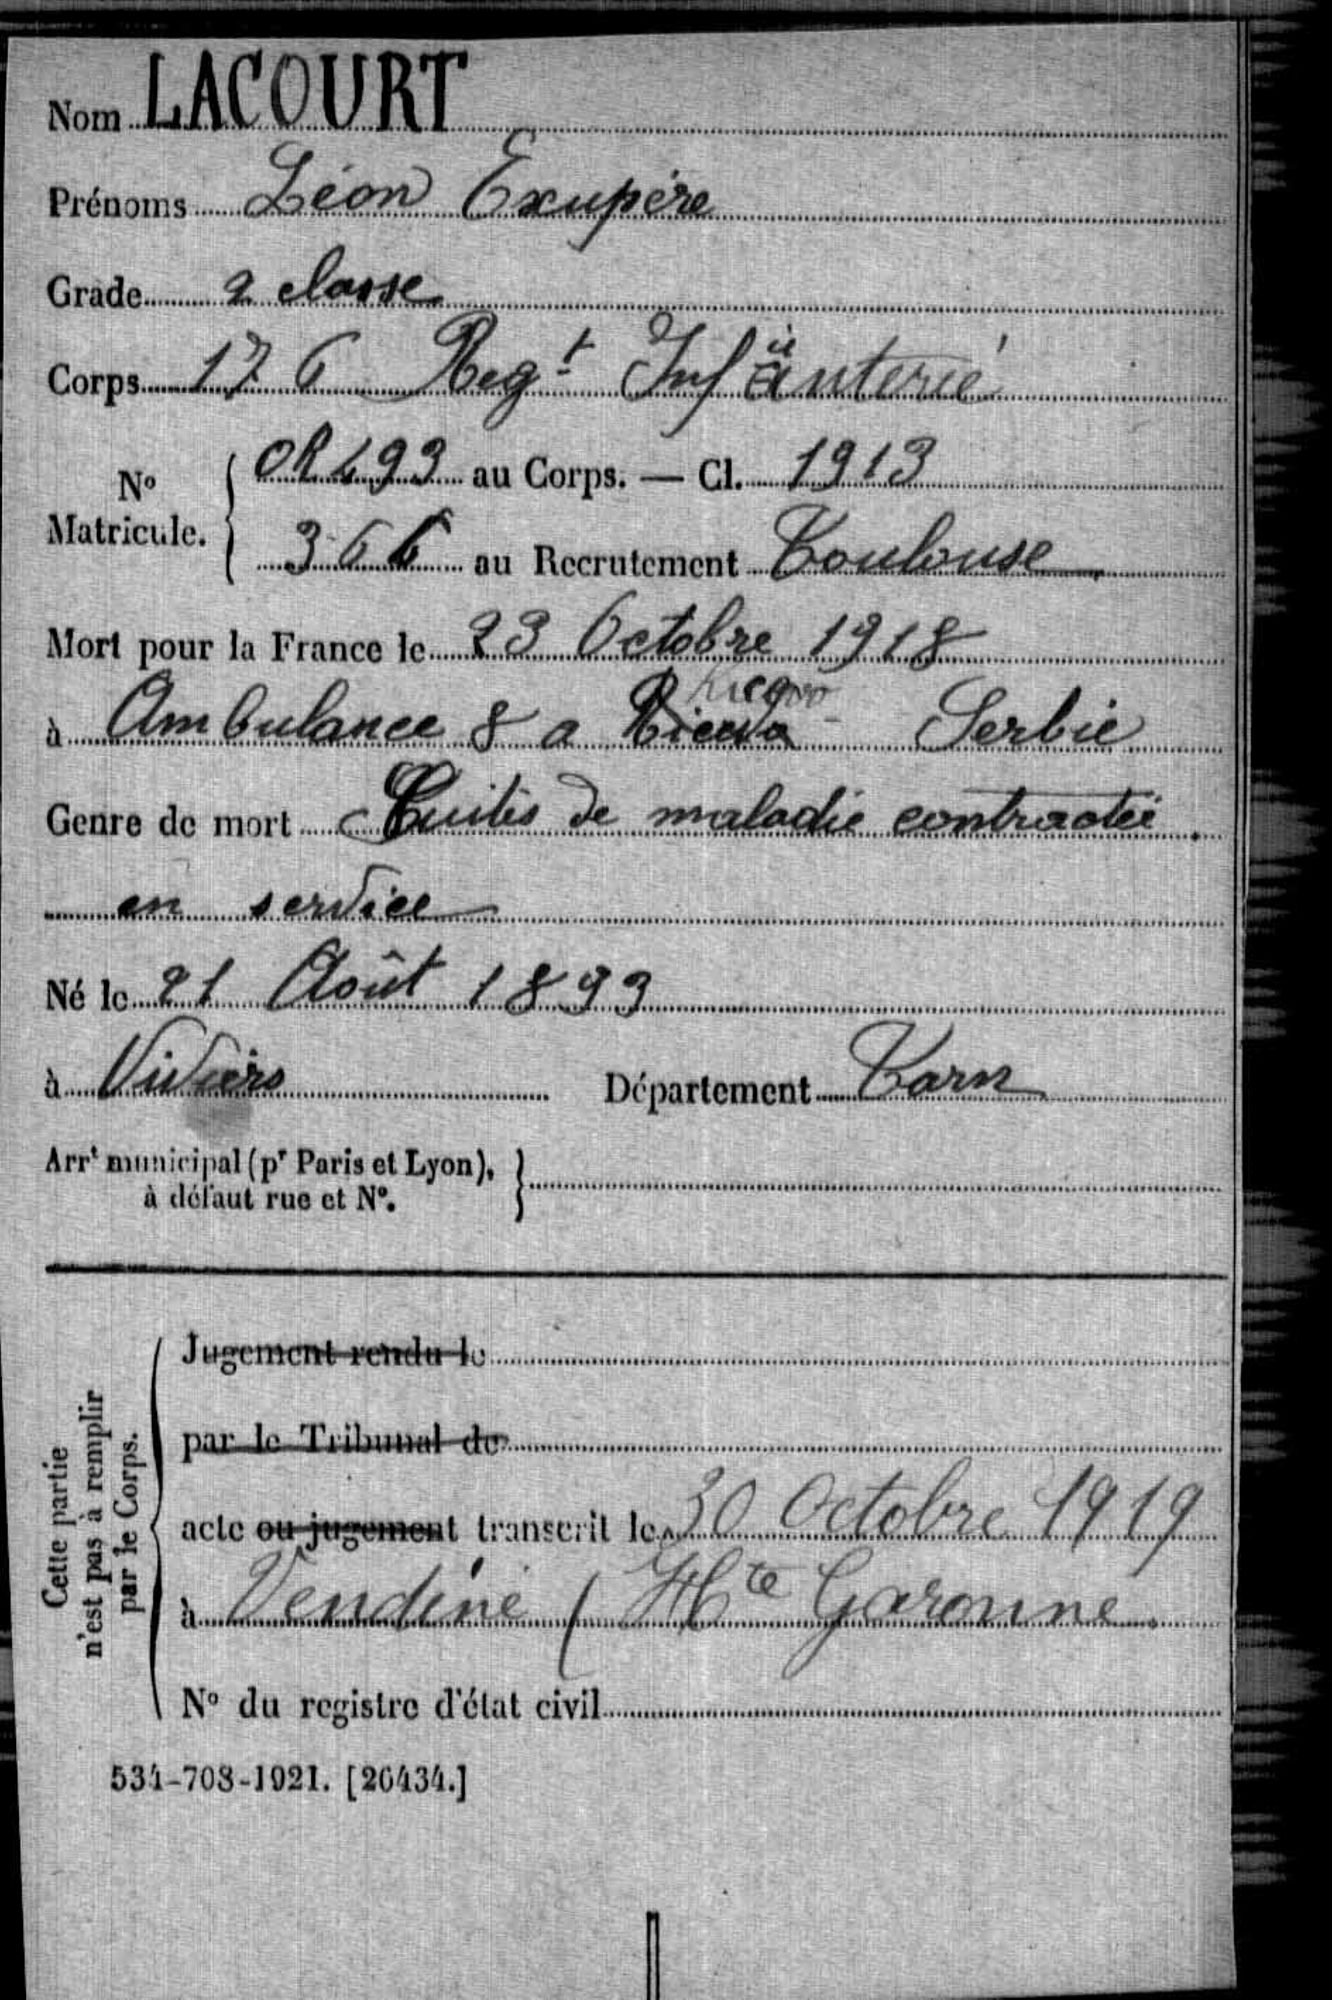 Nom LACOURT
Prénoms Léon Exupére
Grade 2 classe
Corps 176 Regt Infanterie
No Matricule. { OR493 au Corps. — Cl. 1913
366 au Recrutement Toulouse
Mort pour la France le 23 Octobre 1918
à Ambulance 8 a Serbie
Genre de mort Suites de maladie contractée
en service
Né le 21 Août 1893
à Viviers Département Tarn
Arrt municipal (pr Paris et Lyon),
à défaut rue et No. }
Cette partie
n'est pas à remplir
par le Corps.
Jugement rendu le
par le Tribunal de
acte ou jugement transcrit le 30 Octobre 1919
à Vendine (Hte Garonne.
No du registre d'état civil
534-708-1921. [26434.]